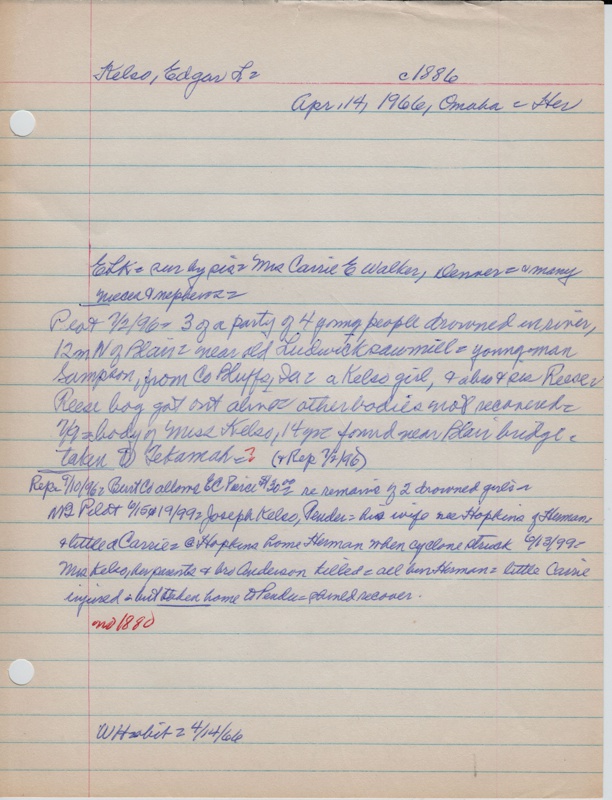 Kelso, Edgar L= c1886
Apr, 14, 1966, Omaha = Her
ELK= sur by sis= Mrs Carrie E Walker, Denver= & many
nieces & nephews=
Pilot 7/2/96= 3 of a party of 4 young people drowned in river,
12 m N of Blair= near old Ludwick sawmill= young man
Sampson, from Co Bluffs, Ia= a Kelso girl, & a bro & sis Reese=
Reese boy got out alive= other bodies not recovered=
7/9= body of Miss Kelso, 14 yrs found near Blair bridge=
taken to Tekamah=? (& Rep 7/2/96)
Rep= 9/10/96= Burt Co allows EC Pierce $30.00 re remains of 2 drowned girls=
Pilot 6/15 & 19/99= Joseph Kelso, Pender= his wife nee Hopkins of Herman
& little d Carrie= @ Hopkins home Herman when cyclone struck 6/13/99=
Mrs Kelso, her parents & bro Anderson killed= all bur Herman= little Carrie
injured= but taken home to Pender= & recover.
no 1880
WH obit= 4/14/66